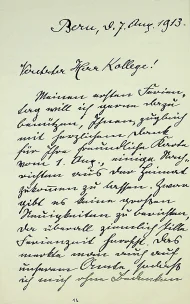 Bern, d. 7. Aug. 1913.
Verehrter Herr Kollege!
Meinen ersten Ferien-
tag will ich gerne dazu
benützen, Ihnen, zugleich
mit herzlichem Dank
für Ihre freundliche Karte
vom 1. Aug., einige Nach-
richten aus der Heimat
zukommen zu lassen.
gibt es keine grossen
Neuigkeiten zu berichten,
da überall ziemlich stille
Ferienzeit herrscht. Das
merkte man auch auf
unserem Amte,
ich mich ohne Bedenken